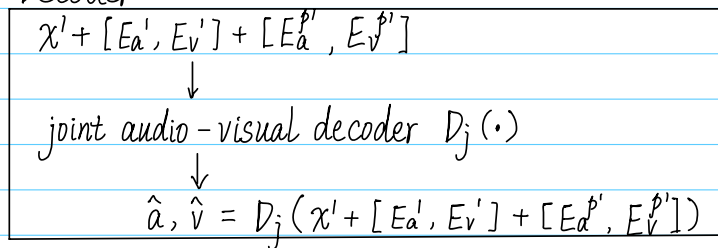 decoder
x' + [Ea', Ev'] + [Ea^p', Ev^p']
↓
joint audio-visual decoder Dj(·)
↓
â, v̂ = Dj(x' + [Ea', Ev'] + [Ea^p', Ev^p'])